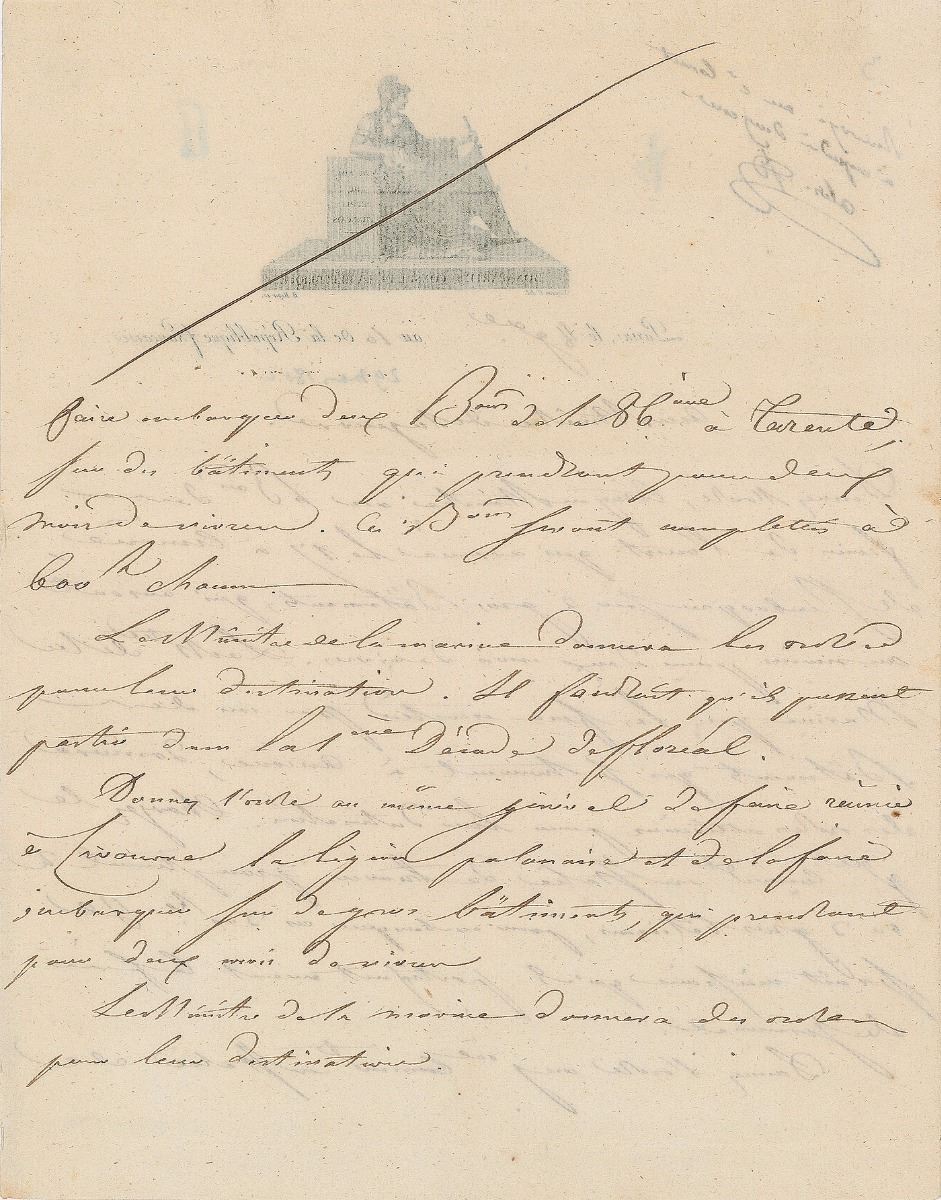 faire embarquer deux B.ons de la 86ème à Tarente,
sur des bâtiments qui prendront pour deux
mois de vivres. Ces B.ons seront completés à
600 h chacun.
Le Ministre de la marine donnera les ordres
pour leur destination. Il faudrait qu'ils pussent
partir dans la 1ère Décade de floréal.
Donnez l'ordre au même général de faire réunir
à Livourne la légion polonaise et de la faire
embarquer sur de gros bâtiments, qui prendront
pour deux mois de vivres
Le Ministre de la marine donnera des ordres
pour leur destination.